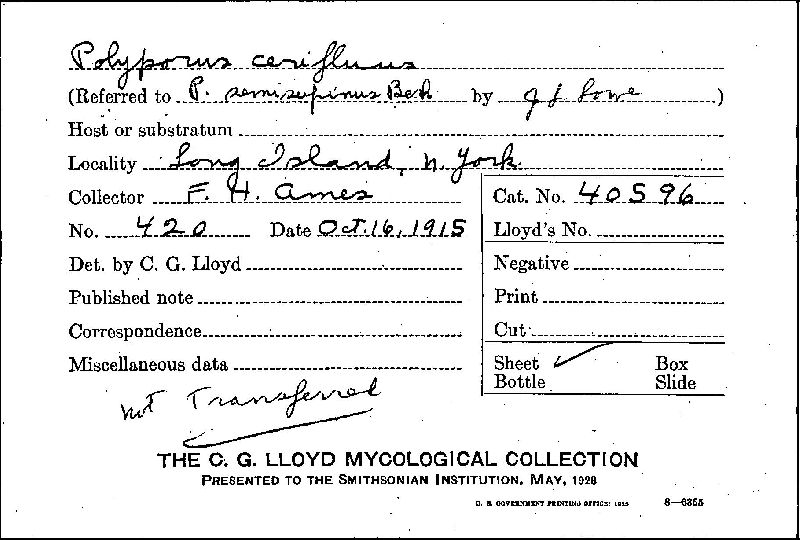 Polyporus cerifluus
(Referred to P. semisupinus Berk by J L Lowe)
Host or substratum
Locality Long Island, N. York.
Collector F. H. Ames
No. 420 Date Oct. 16, 1915
Det. by C. G. Lloyd
Published note
Correspondence
Miscellaneous data
not Transferred
Cat. No. 40596
Lloyd's No.
Negative
Print
Cut
Sheet ✓ Box
Bottle Slide
THE C. G. LLOYD MYCOLOGICAL COLLECTION
PRESENTED TO THE SMITHSONIAN INSTITUTION, MAY, 1928
U. S. GOVERNMENT PRINTING OFFICE: 8—6355